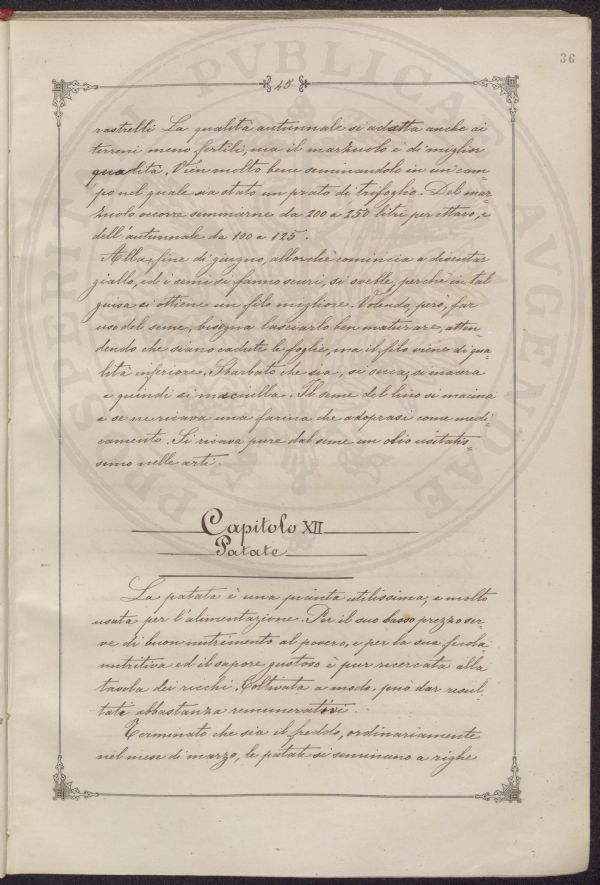 36
45
rastrelli La qualità autunnale si adatta anche ai
terreni meno fertili, ma il marzuolo è di miglior
qualità. Vien molto bene seminandolo in un cam-
po nel quale sia stato un prato di trifoglio. Del mar-
zuolo occorre seminarne da 200 a 250 litri per ettaro, e
dell'autunnale da 100 a 125.
Alla fine di giugno, allorchè comincia a diventar
giallo, ed i semi si fanno scuri, si svelle, perchè in tal
guisa si ottiene un filo migliore. Volendo, però, far
uso del seme, bisogna lasciarlo ben maturare, atten-
dendo che siano cadute le foglie, ma il filo viene di qua-
lità inferiore. Sbarbato che sia, si secca, si macera
e quindi si maciulla. Il seme del lino si macina
e se ne ricava una farina che adoprasi come medi-
camento. Si ricava pure dal seme un olio usitatis-
simo nelle arti.
Capitolo XII
Patate
La patata è una pianta utilissima, e molto
usata per l'alimentazione. Per il suo basso prezzo ser-
ve di buon nutrimento al povero, e per la sua fecola
nutritiva ed il sapore gustoso è pur ricercata alla
tavola dei ricchi. Coltivata a modo, può dar resul-
tati abbastanza remunerativi.
Terminato che sia il freddo, ordinariamente
nel mese di marzo, le patate si seminano a righe
PROSPERITATI PVBLICAE AVGENDAE